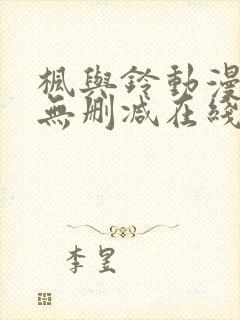 楓與鈴動漫
無刪減在綫
李昱